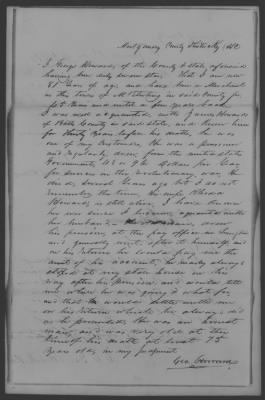 Montgomery County Kentucky
I George Howard of the County & State aforesaid
having been duly sworn states That I am now
years of age and have been a Merchant
in the town of Mt Sterling in said County for
years and until a few years back
I was well acquainted with James Howard
of Bath County in said State, and knew him
for thirty years before his death, he was
one of my Customers. He was a pensioner
and regularly drew, from the united states
Government, dollars per day
for services in the revolutionary war, He
died several years ago but I do not
remember the time, his wife
Howard is still alive, I have known
her
her husband drew
his pension at the pay office in Lexington
and generally went after it himself, and
on his return he would pay me the
amt of his account, he nearly always
stopped at my store house on his
way after his Pension and would tell
me where he was going & what for
and that he would settle with me
on his return which he always did
as he promised. He was an honest
man, and was very old at the
time of his death at least 75
years old, in my judgment
Geo. Howard